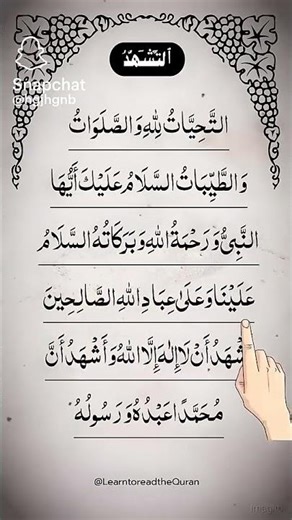 Snapchat
@hgjhgnb
اَلتَّشَهُّدُ
التَّحِيَّاتُ لِلّٰهِ وَالصَّلَوَاتُ
وَالطَّيِّبَاتُ السَّلَامُ عَلَيْكَ أَيُّهَا
النَّبِيُّ وَرَحْمَةُ اللّٰهِ وَبَرَكَاتُهُ السَّلَامُ
عَلَيْنَا وَعَلَىٰ عِبَادِ اللّٰهِ الصَّالِحِينَ
شْهَدُ أَنْ لَا إِلٰهَ إِلَّا اللّٰهُ وَأَشْهَدُ أَنَّ
مُحَمَّدًا عَبْدُهُ وَرَسُولُهُ
@LearntoreadtheQuran